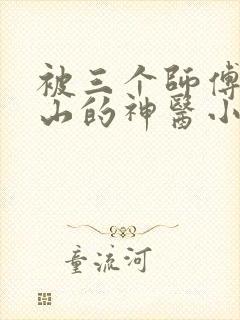 被三个師傅
山的神醫小
童流河